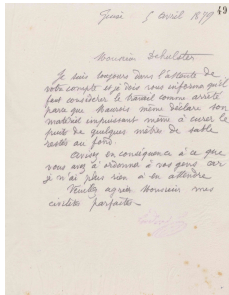 5 avril 1899
49
Monsieur
Je suis toujours dans l'attente de
votre compte et je dois vous informer qu'il
faut considérer le travail comme arrêté
parce que même déclare son
matériel impuissant même à curer le
puits de quelques mètres de sable
restés au fond.
Avisez en conséquence à ce que
vous avez à ordonner à vos gens car
je n'ai plus rien à en attendre
Veuillez agréer Monsieur mes
civilités parfaites